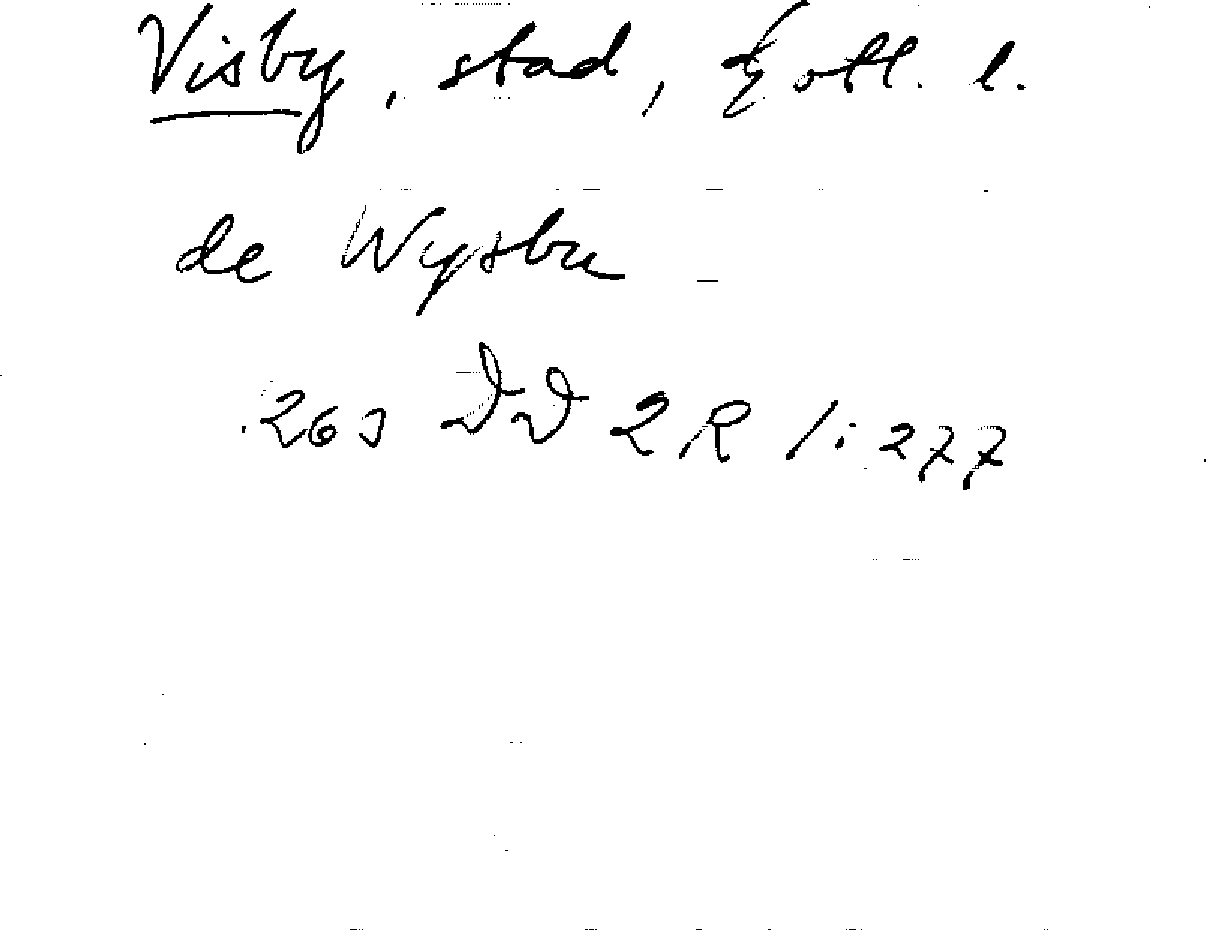 Visby, stad, Gotl. l.
de Wysbu -
DD 2 R 1:277